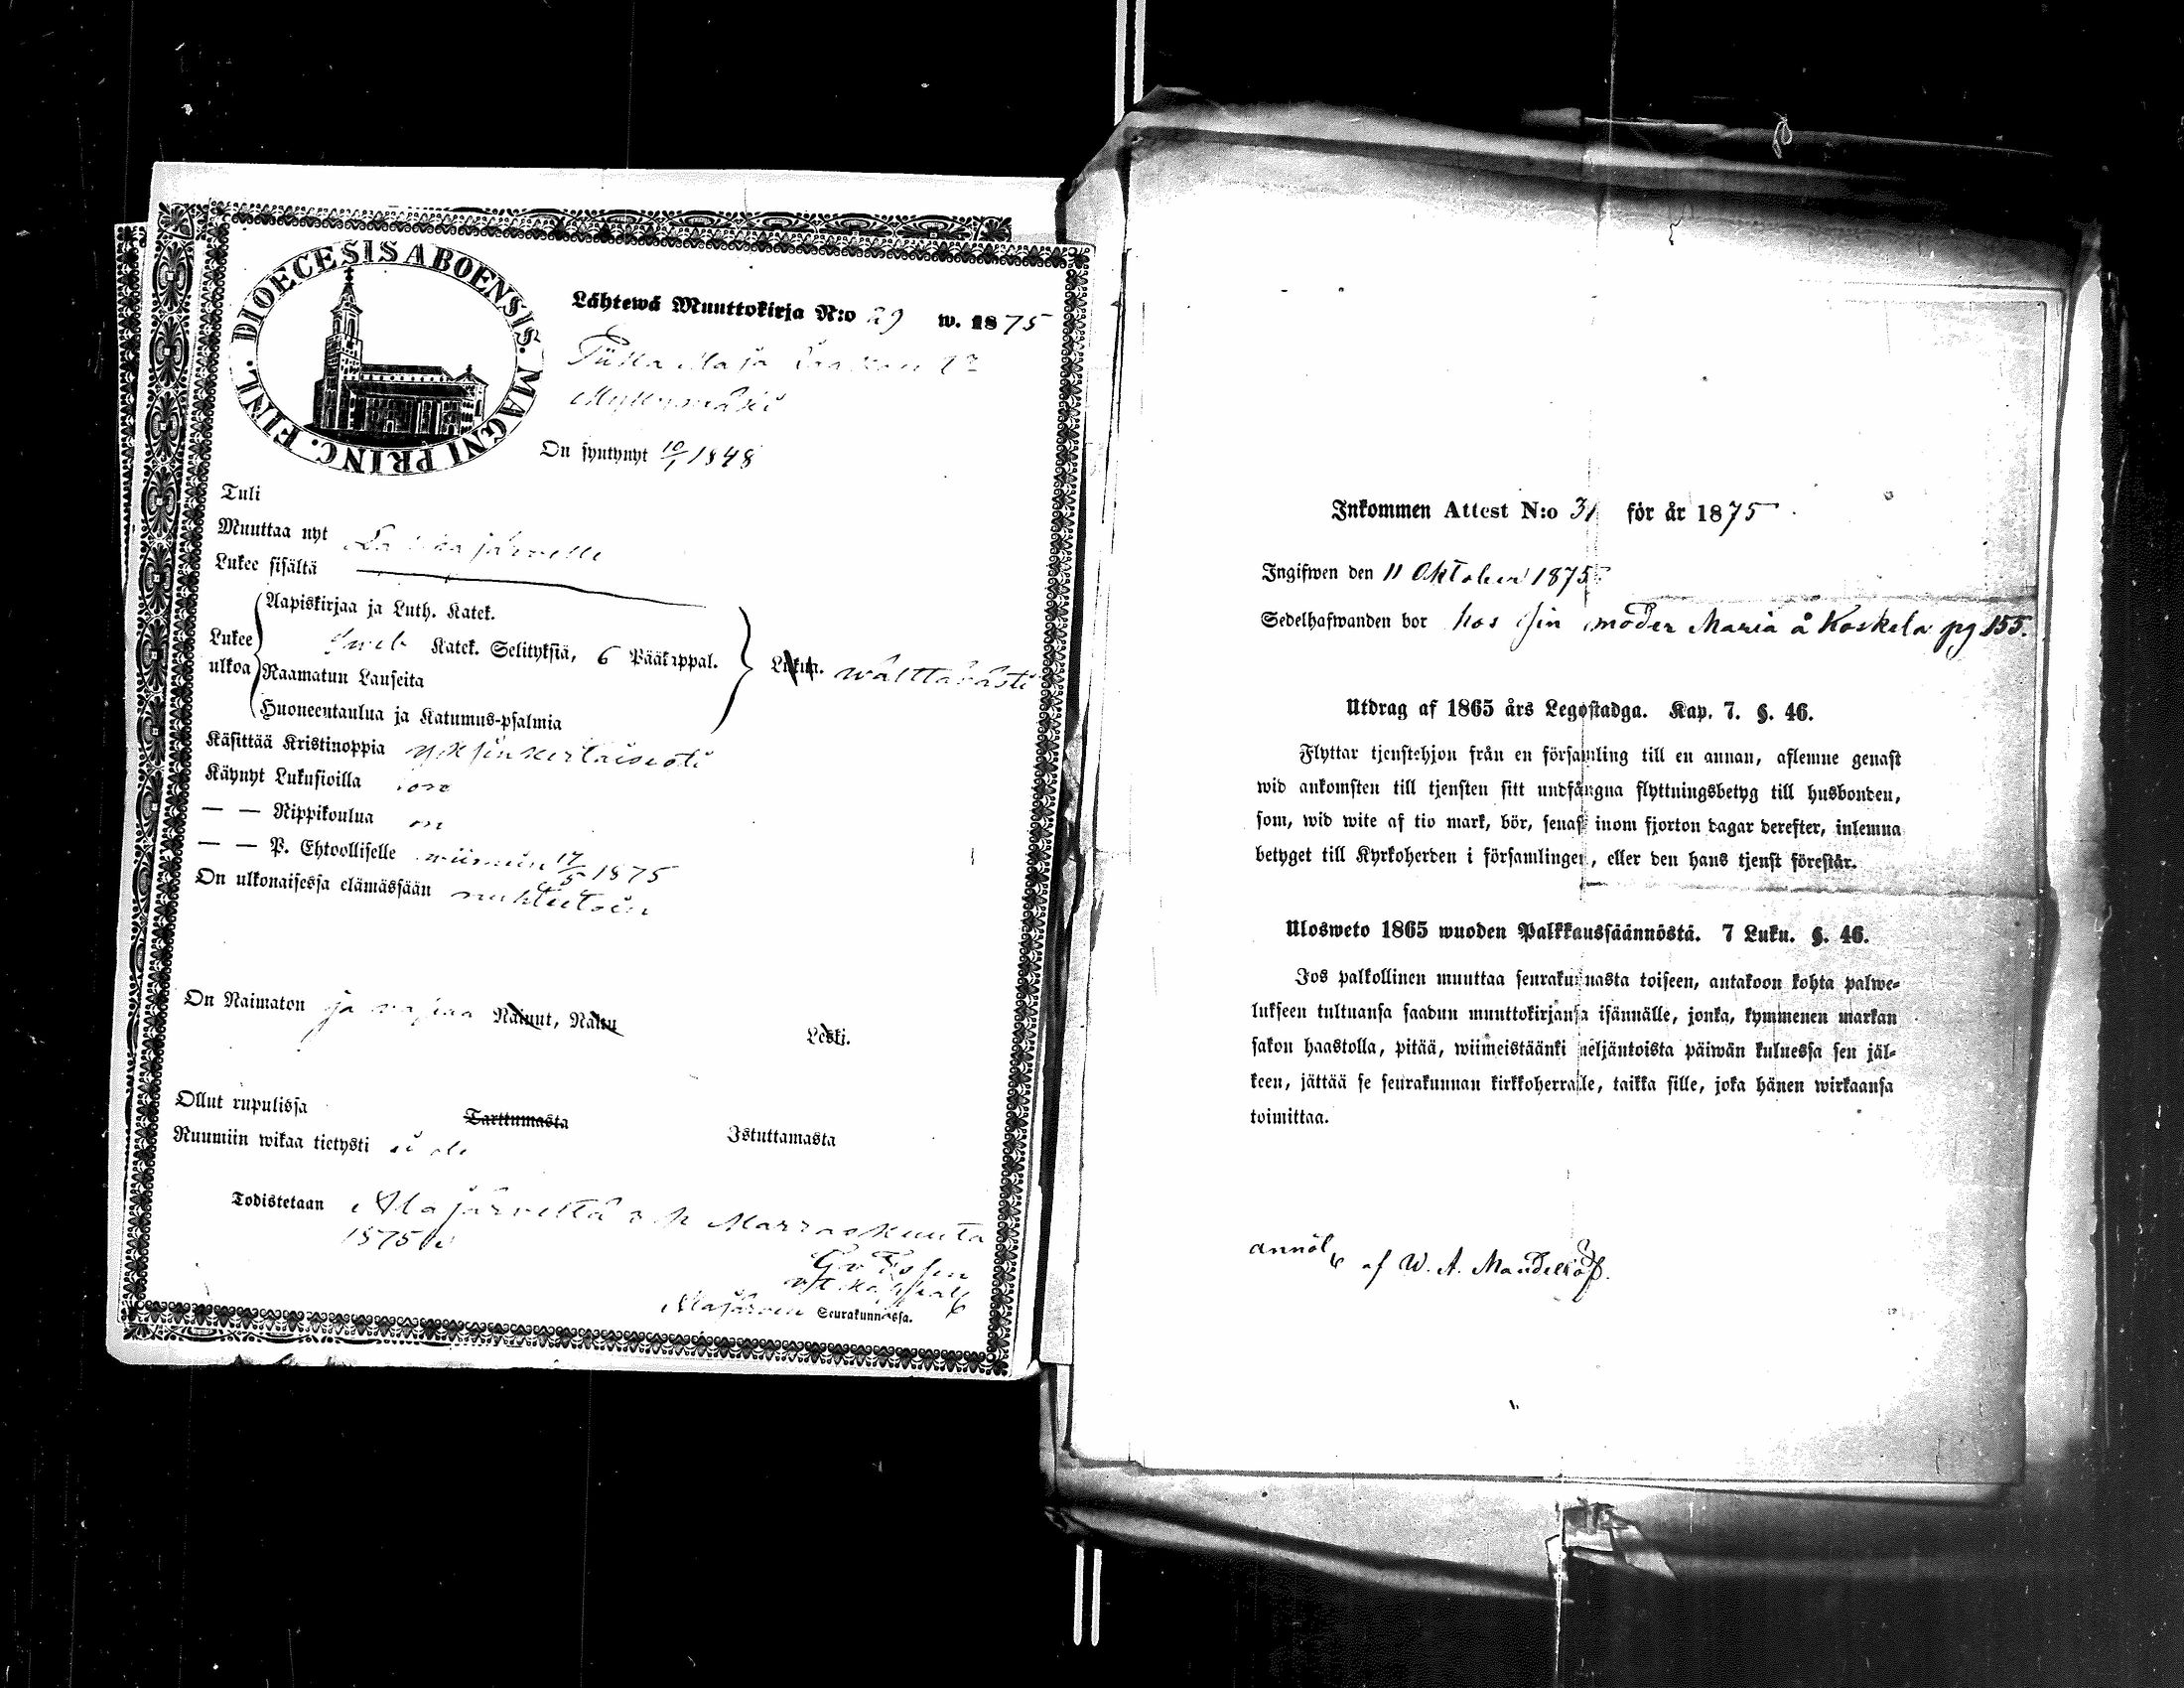 DIOECESIS ABOENSIS. MAGNI PRINC. FINL.
Lähtewä Muuttokirja N:o 29 w. 1875
Maja
Myllymäki
On syntynyt 10/1 1848
Tuli
Muuttaa nyt
Lukee sisältä
Lukee ulkoa
Aapiskirjaa ja Luth. Katek.
Sveb Katek. Selityksiä, 6 Pääkappal.
Raamatun Lauseita
Huoneentaulua ja Katumus-psalmia
Lukun. wälttäwästi
Käsittää Kristinoppia yksinkertaisesti
Käynyt Lukusioilla on
— — Rippikoulua on
— — P. Ehtoolliselle wiimein 17/5 1875
On ulkonaisessa elämässään nuhteetoin
On Naimaton ja wapaa Nainut, Naitu Leski.
Ollut rupulissa Tarttumasta Istuttamasta
Ruumiin wikaa tietysti ei ole
Todistetaan Alajärweltä Marraskuuta
1875
Alajärven Seurakunnassa.
Inkommen Attest N:o 31 för år 1875
Ingifwen den 11 Oktober 1875
Sedelhafwanden bor hos sin moder Maria å Koskela pg 155.
Utdrag af 1865 års Legostadga. Kap. 7. §. 46.
Flyttar tjenstehjon från en församling till en annan, aflemne genast
wid ankomsten till tjensten sitt undfångna flyttningsbetyg till husbonden,
som, wid wite af tio mark, bör, senast inom fjorton dagar derefter, inlemna
betyget till Kyrkoherden i församlingen, eller den hans tjenst förestår.
Ulosweto 1865 wuoden Palkkaussäännöstä. 7 Luku. §. 46.
Jos palkollinen muuttaa seurakunnasta toiseen, antakoon kohta palwe-
lukseen tultuansa saadun muuttokirjansa isännälle, jonka, kymmenen markan
sakon haastolla, pitää, wiimeistäänki neljäntoista päiwän kuluessa sen jäl-
keen, jättää se seurakunnan kirkkoherralle, taikka sille, joka hänen wirkaansa
toimittaa.
af W. A. Mandellöf.